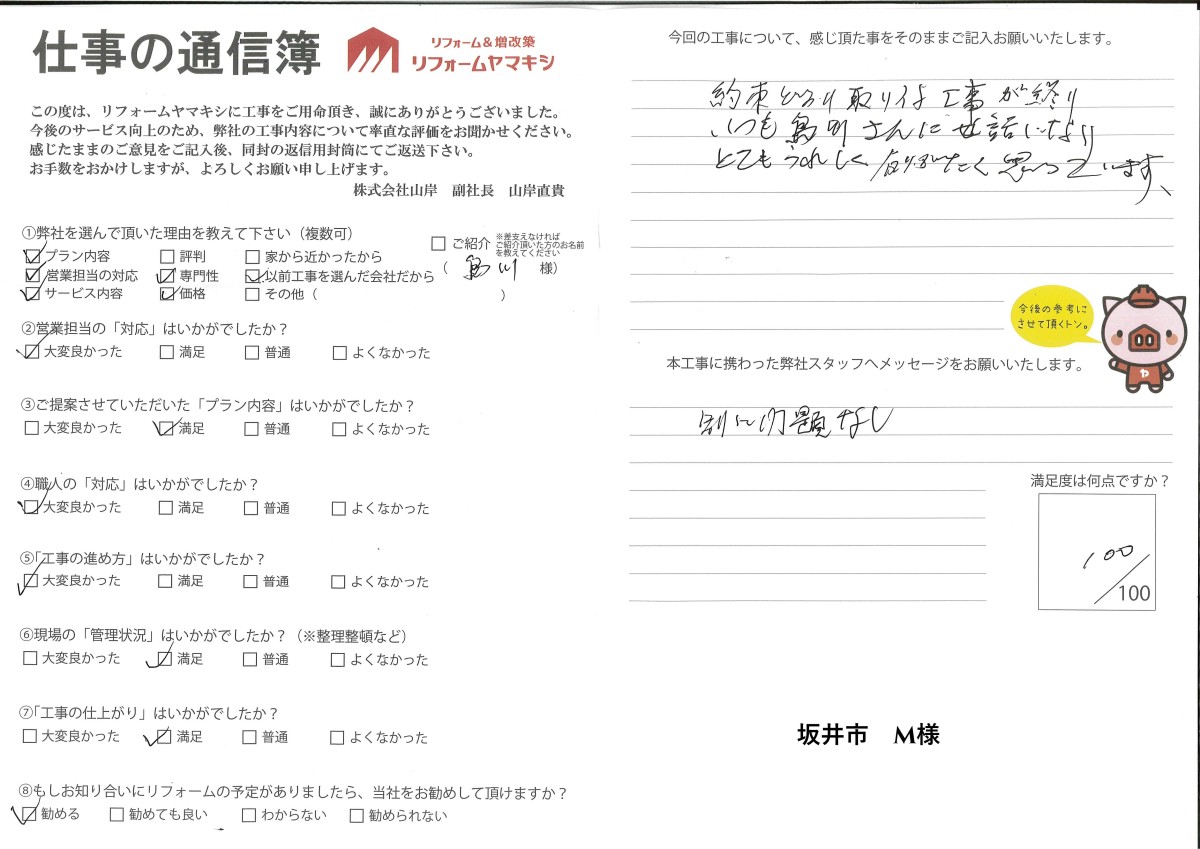 仕事の通信簿
リフォーム&増改築
リフォームヤマキシ
この度は、リフォームヤマキシに工事をご用命頂き、誠にありがとうございました。
今後のサービス向上のため、弊社の工事内容について率直な評価をお聞かせください。
感じたままのご意見をご記入後、同封の返信用封筒にてご返送下さい。
お手数をおかけしますが、よろしくお願い申し上げます。
株式会社山岸 副社長 山岸直貴
①弊社を選んで頂いた理由を教えて下さい（複数可）
☑プラン内容 □評判 □家から近かったから
☑営業担当の対応 ☑専門性 ☑以前工事を選んだ会社だから
☑サービス内容 ☑価格 □その他（ ）
□ご紹介 ※差支えなければ
ご紹介頂いた方のお名前
を教えてください
（ 様）
②営業担当の「対応」はいかがでしたか？
☑大変良かった □満足 □普通 □よくなかった
③ご提案させていただいた「プラン内容」はいかがでしたか？
□大変良かった ☑満足 □普通 □よくなかった
④職人の「対応」はいかがでしたか？
☑大変良かった □満足 □普通 □よくなかった
⑤「工事の進め方」はいかがでしたか？
☑大変良かった □満足 □普通 □よくなかった
⑥現場の「管理状況」はいかがでしたか？（※整理整頓など）
□大変良かった ☑満足 □普通 □よくなかった
⑦「工事の仕上がり」はいかがでしたか？
□大変良かった ☑満足 □普通 □よくなかった
⑧もしお知り合いにリフォームの予定がありましたら、当社をお勧めして頂けますか？
☑勧める □勧めても良い □わからない □勧められない
今回の工事について、感じ頂た事をそのままご記入お願いいたします。
約束どおり取り付け工事が終り
いつも さんに世話になり
とてもうれしく有りがたく思っています、
今後の参考に
させて頂くトン。
ヤ
本工事に携わった弊社スタッフへメッセージをお願いいたします。
別に問題なし
満足度は何点ですか？
100
/100
坂井市 M様